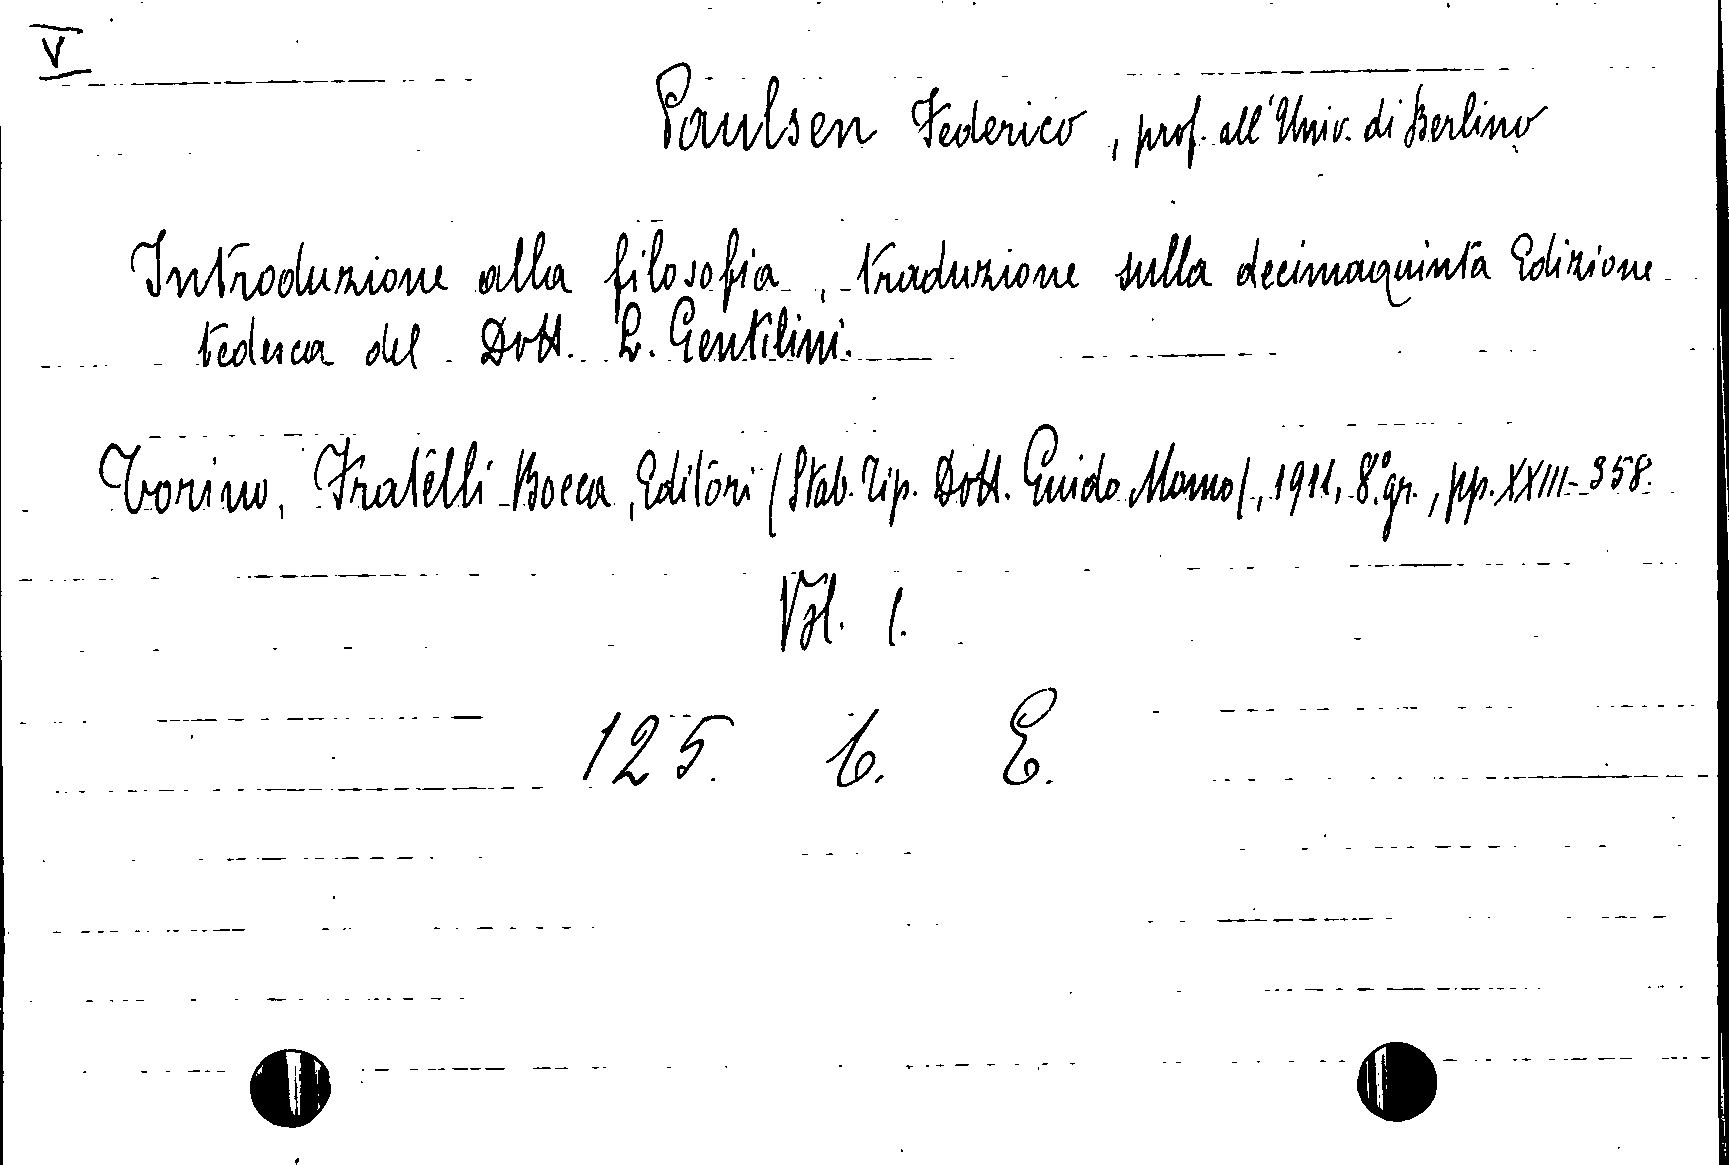 V
Paulsen Federico, prof. all'Univ. di Berlino
Introduzione alla filosofia, traduzione sulla decimaquinta Edizione
tedesca del Dott. L. Gentilini.
Torino, Fratelli Bocca, Editori (Stab. Tip. Dott. Guido Momo), 1911, 8.° gr., pp. XXIII-358.
Vol. 1.
125. C. E.